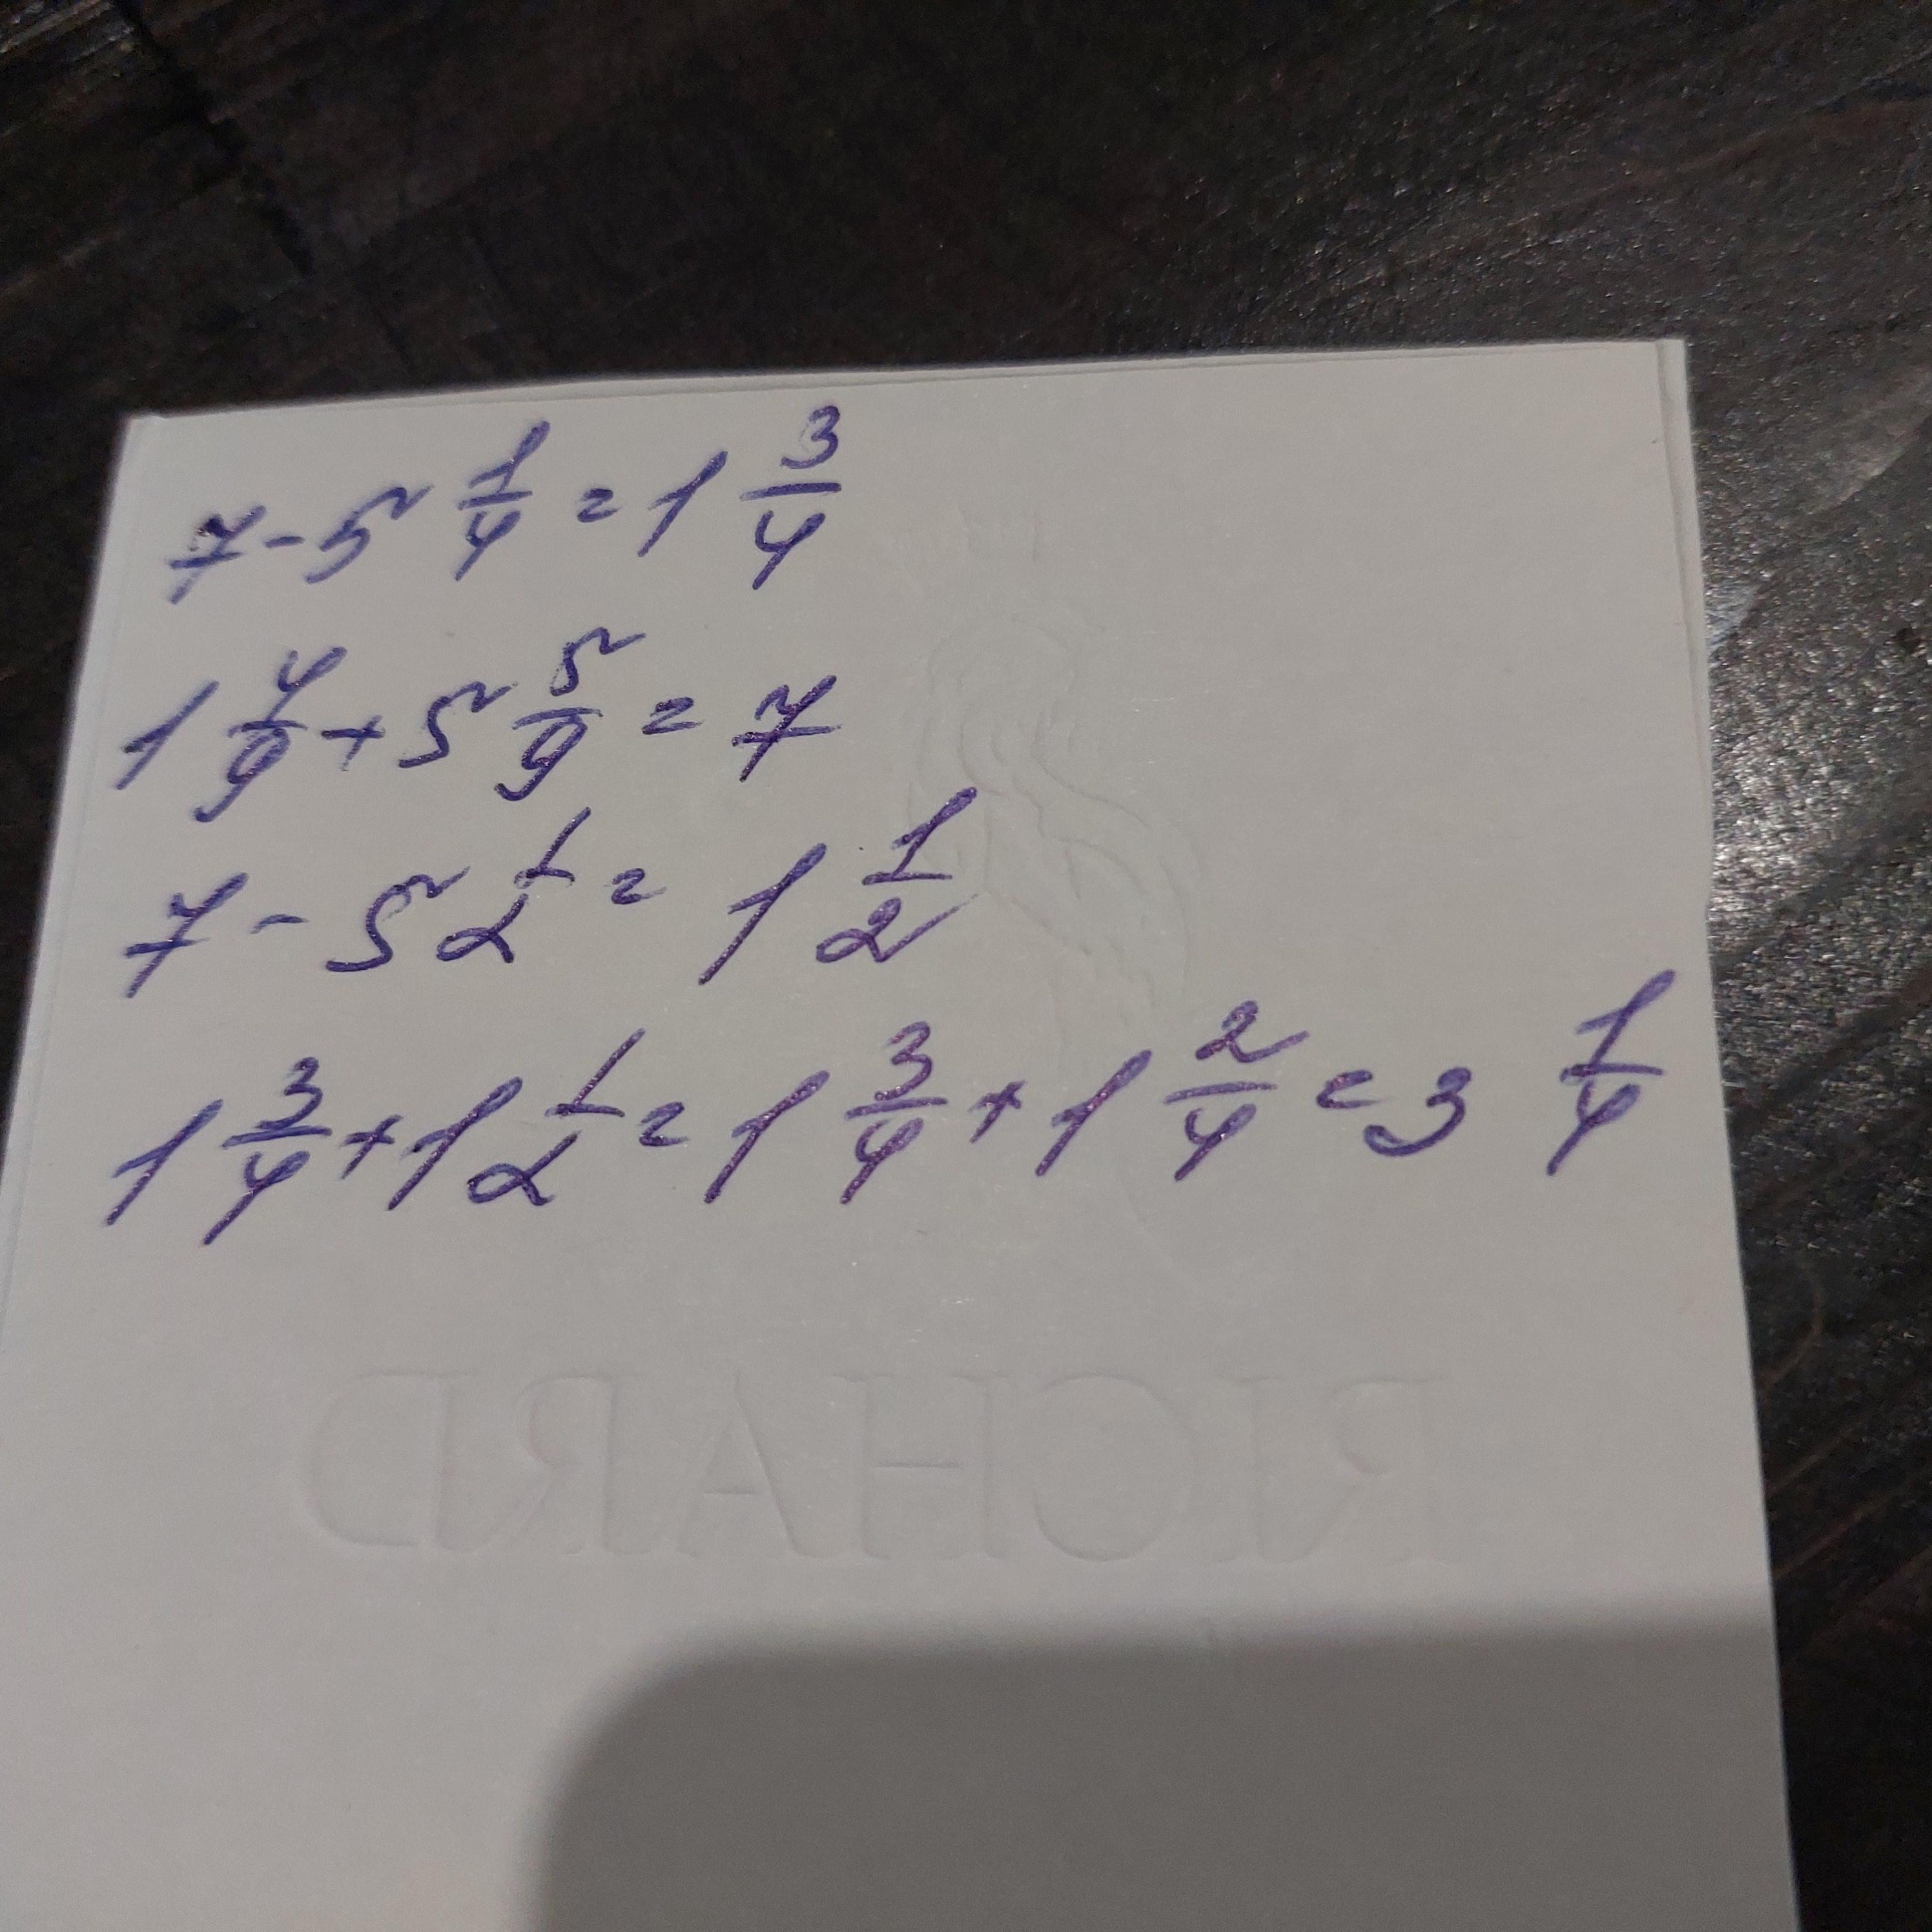 7 - 5 1/4 = 1 3/4
1 4/9 + 5 5/9 = 7
7 - 5 1/2 = 1 1/2
1 3/4 + 1 1/2 = 1 3/4 + 1 2/4 = 3 1/4
RICHARD